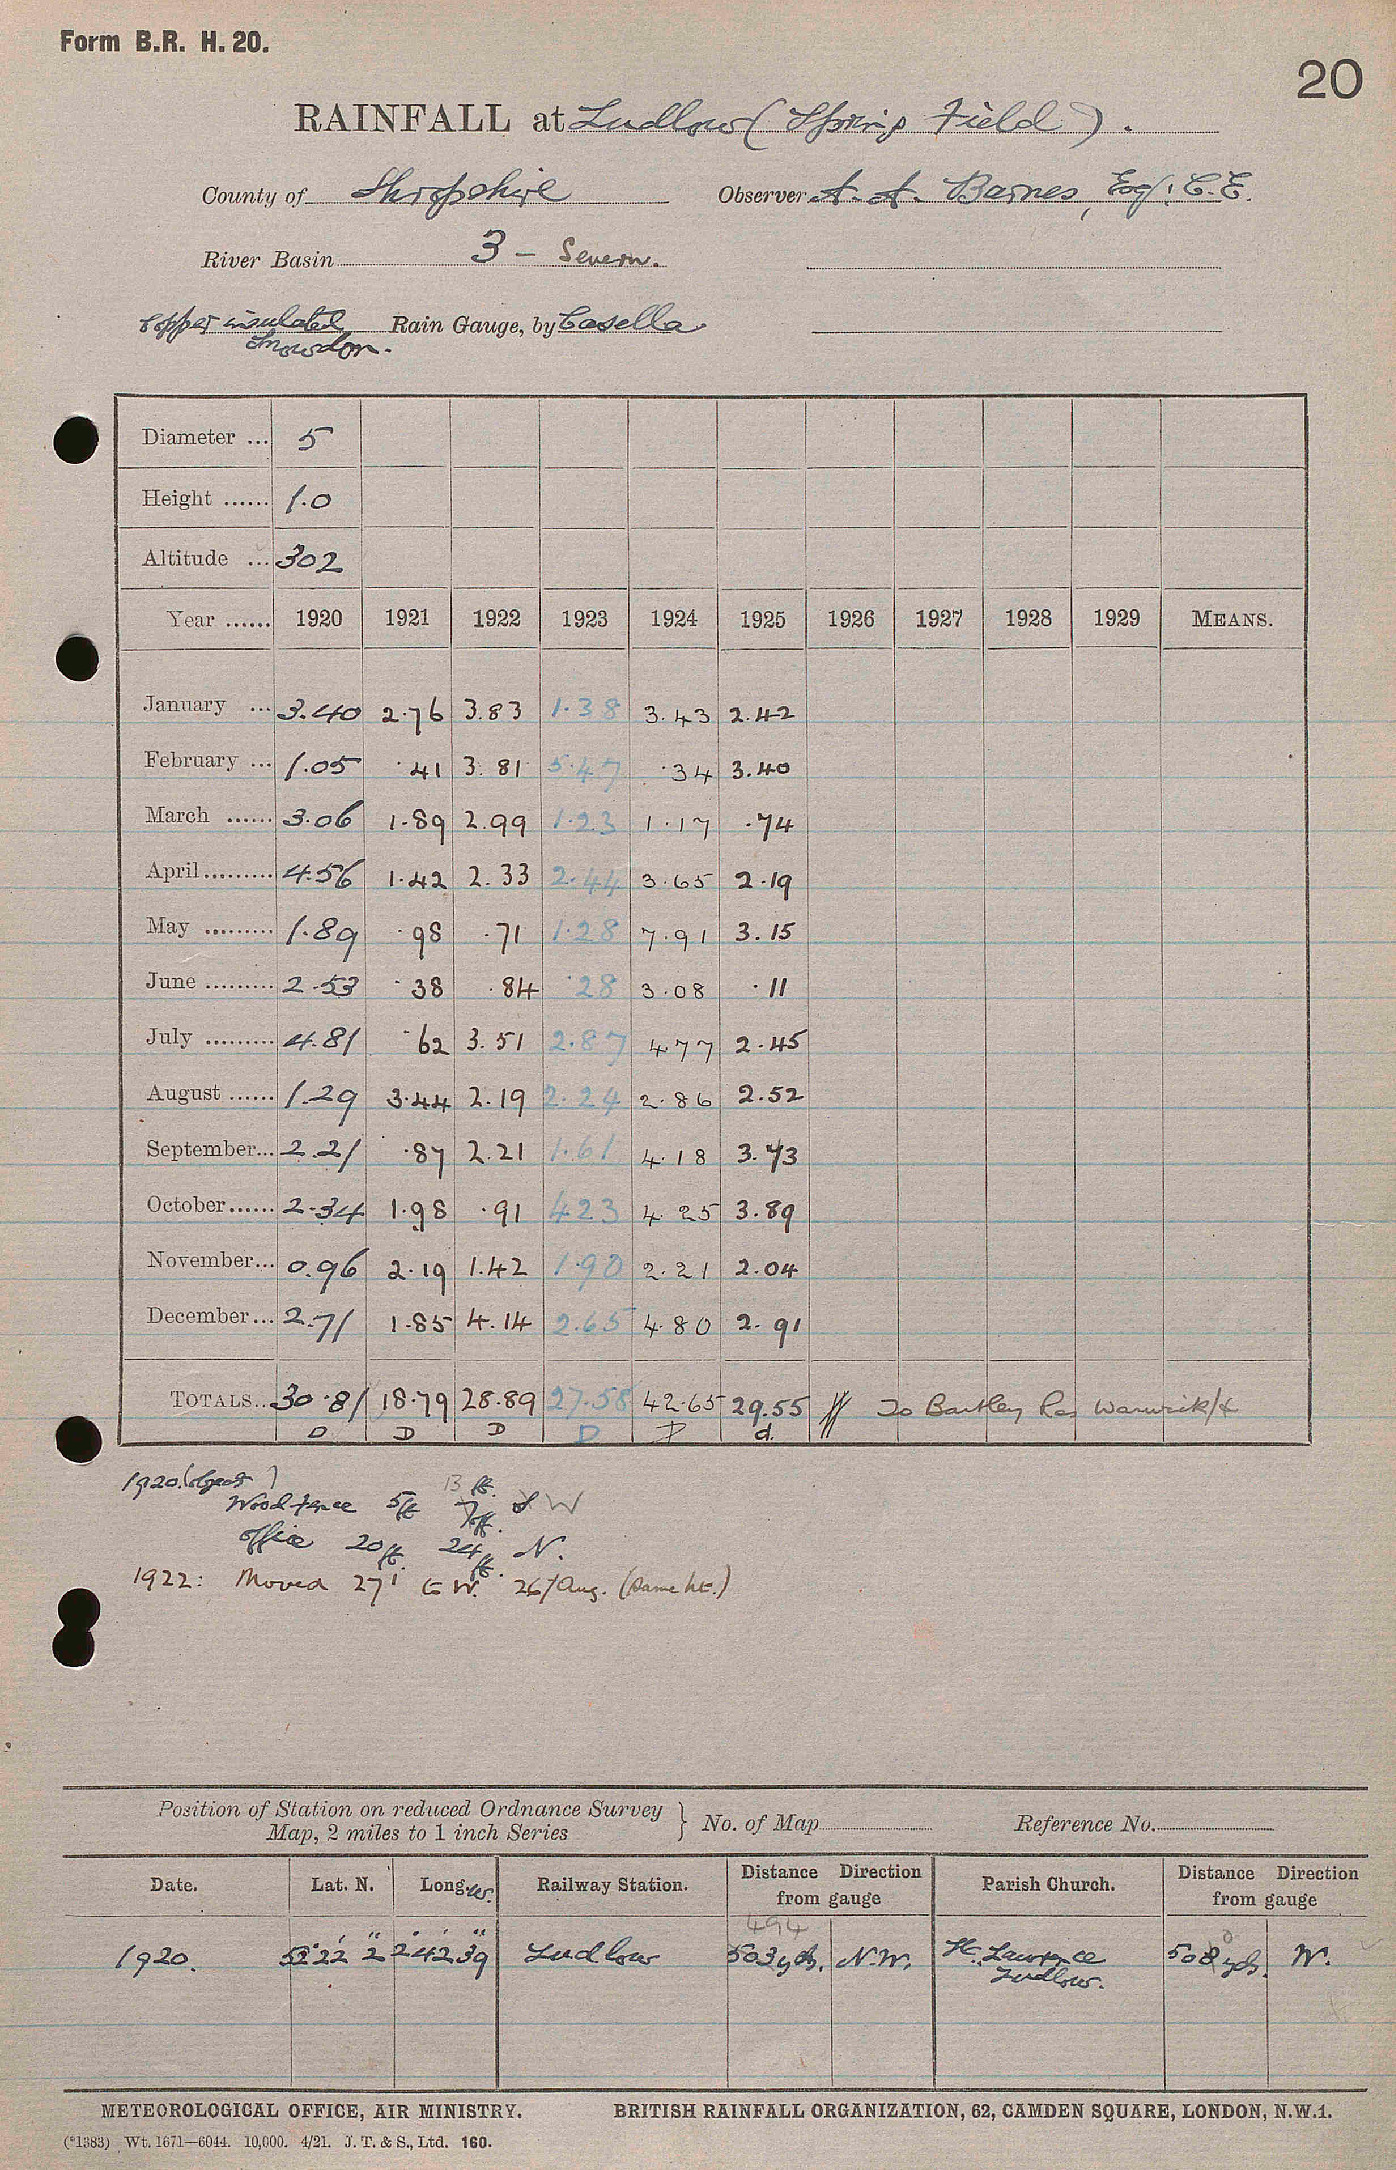 Form B.R. H. 20.
20
RAINFALL at Ludlow (Spring Field).
County of Shropshire Observer A. A. Barnes, Esq; C.E.
River Basin 3 - Severn.
Copper insulated Snowdon. Rain Gauge, by Casella
Diameter ... 5
Height ...... 1.0
Altitude ... 302
Year ...... 1920 1921 1922 1923 1924 1925 1926 1927 1928 1929 MEANS.
January ... 3.40 2.76 3.83 1.38 3.43 2.42
February ... 1.05 .41 3.81 5.47 .34 3.40
March ...... 3.06 1.89 2.99 1.23 1.17 .74
April ......... 4.56 1.42 2.33 2.44 3.65 2.19
May ......... 1.89 .98 .71 1.28 7.91 3.15
June ......... 2.53 .38 .84 .28 3.08 .11
July ......... 4.81 .62 3.51 2.87 4.77 2.45
August ...... 1.29 3.44 2.19 2.24 2.86 2.52
September... 2.21 .87 2.21 1.61 4.18 3.73
October...... 2.34 1.98 .91 4.23 4.25 3.89
November... 0.96 2.19 1.42 1.90 2.21 2.04
December... 2.71 1.85 4.14 2.65 4.80 2.91
TOTALS.. 30.81 18.79 28.89 27.58 42.65 29.55 To Bartley Res Warwick/
D D D D d.
1920. (Object)
Wood fence 5ft 13 ft. 7ft. W
Office 20ft. 24ft. N.
1922: Moved 27' to W. 26/Aug. (same ht.)
Position of Station on reduced Ordnance Survey Map, 2 miles to 1 inch Series } No. of Map Reference No.
Date. Lat. N. Long. W. Railway Station. Distance Direction from gauge Parish Church. Distance Direction from gauge
494
1920. 52° 22' 2" 2° 42' 39" Ludlow 503 yds. N.W. St. Lawrence Ludlow. 508 yds. W.
METEOROLOGICAL OFFICE, AIR MINISTRY. BRITISH RAINFALL ORGANIZATION, 62, CAMDEN SQUARE, LONDON, N.W.1.
(*1383) Wt. 1671—6044. 10,000. 4/21. J. T. & S., Ltd. 160.